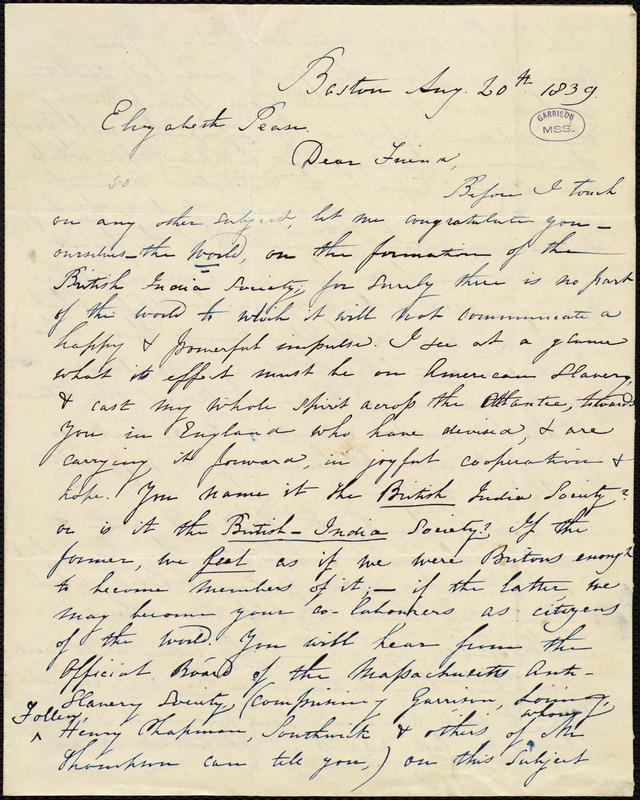 Boston Aug. 20th 1839.
GARRISON
MSS.
Elizabeth Pease.
Dear Friend,
Before I touch
on any other subject, let me congratulate you –
ourselves – the World, on the formation of the
British India Society; for surely there is no part
of the world to which it will not communicate a
happy & powerful impulse. I see at a glance
what its effect must be on American Slavery,
& cast my whole spirit across the Atlantic, towards
you in England who have devised, & are
carrying it forward, in joyful cooperation &
hope. You name it the British India Society?
or is it the British – India Society? If the
former, we feel as if we were Britons enough
to become members of it; – if the latter, we
may become your co-labourers as citizens
of the world. You will hear from the
Official Board of the Massachusetts Anti-
Slavery Society, (comprising Garrison, Loring,
Follen, ^ Henry Chapman, Southwick & others of whom Mr
Thompson can tell you,) on this subject